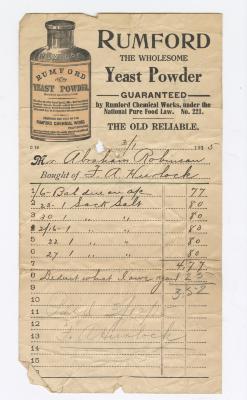 RUMFORD
THE WHOLESOME
Yeast Powder
GUARANTEED
by Rumford Chemical Works, under the
National Pure Food Law. No. 221.
THE OLD RELIABLE.
RUMFORD
YEAST POWDER.
RUMFORD CHEMICAL WORKS
3/1 1915
Mr. Abraham Robinson
Bought of F. A. Hurlock
1 /6- Bal due on a/c 77
2 22- 1 Sack Salt 80
3 30 1 " " 80
4 2/16- 1 " " 80
5 22 1 " " 80
6 27 1 " " 80
7 4.77
8 Deduct what I owe you 1.25
9 3.52
10
11
12 F. A. Hurlock
13
15